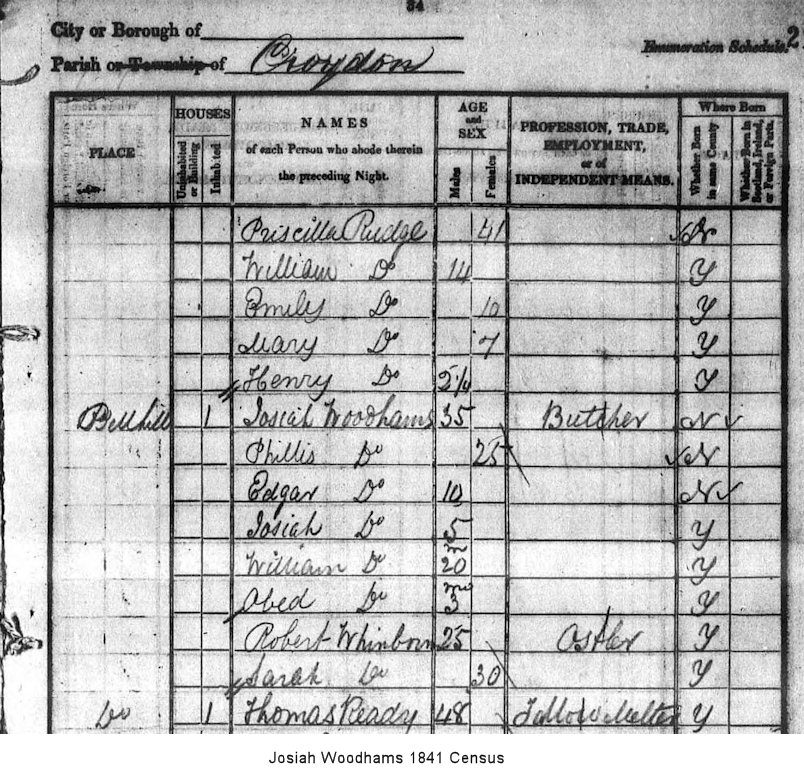 34
City or Borough of
Parish or Township of Croydon
Enumeration Schedule. 2
PLACE
HOUSES
Uninhabited or Building
Inhabited
NAMES
of each Person who abode therein
the preceding Night.
AGE
and
SEX
Males
Females
PROFESSION, TRADE,
EMPLOYMENT,
or of
INDEPENDENT MEANS.
Where Born
Whether Born in same County
Whether Born in Scotland, Ireland, or Foreign Parts.
Priscilla Rudge 41 N
William Do 14 Y
Emily Do 10 Y
Mary Do 7 Y
Henry Do Y
Bell hill 1 Josiah Woodhams 35 Butcher N
Phillis Do 25 N
Edgar Do 10 N
Josiah Do 5 Y
William Do 20 m Y
Obed Do 3 mo Y
Robert Whinborn 25 Ostler Y
Sarah Do 30 Y
Do 1 Thomas Ready 48 Tallow Melter Y
Josiah Woodhams 1841 Census